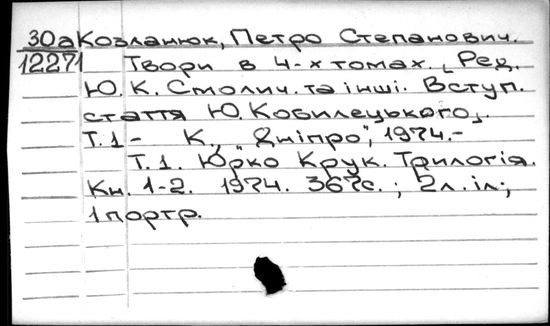 30а Козланюк, Петро Степанович.
12271 Твори в 4-х томах. [Ред.
Ю. К. Смолич. та інші. Вступ.
стаття Ю. Кобилецького].
Т. 1 - К., "Дніпро", 1974.-
Т. 1. Юрко Крук. Трилогія.
Кн. 1-2. 1974. 367с.; 2л. іл;
1 портр.